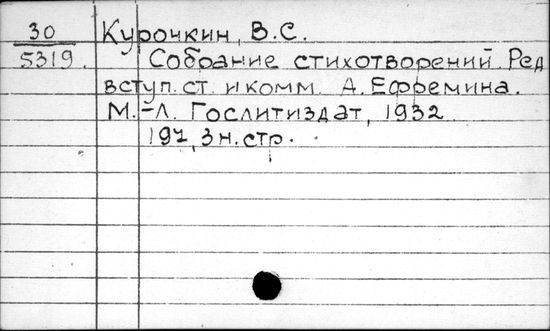 30 Курочкин, В.С.
5319. Собрание стихотворений. Ред.
вступ. ст. и комм. А. Ефремина.
М.-Л. Гослитиздат, 1932
197, 3 н. стр.